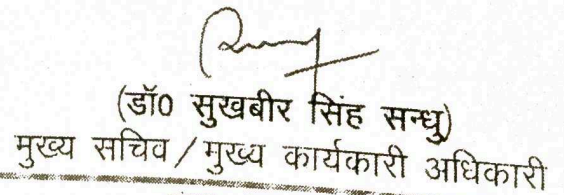 (डॉ0 सुखबीर सिंह सन्धु)
मुख्य सचिव / मुख्य कार्यकारी अधिकारी